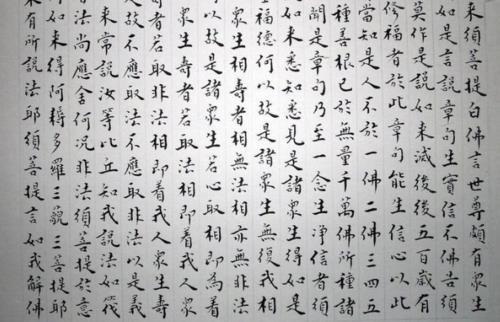 來須菩提白佛言世尊頗有衆生
如是言說章句生實信不佛告須
莫作是說如來滅後後五百歲有
修福者於此章句能生信心以此
當知是人不於一佛二佛三四五
種善根已於無量千萬佛所種諸
聞是章句乃至一念生淨信者須
如來悉知悉見是諸衆生得如是
福德何以故是諸衆生無復我相
衆生相壽者相無法相亦無非法
以故是諸衆生若心取相即為着
衆生壽者若取法相即着我人衆
者若取非法相即着我人衆生壽
故不應取法不應取非法以是義
來常說汝等比丘知我說法如筏
法尚應捨何況非法須菩提於意
如來得阿耨多羅三藐三菩提耶
來有所說法耶須菩提言如我解佛